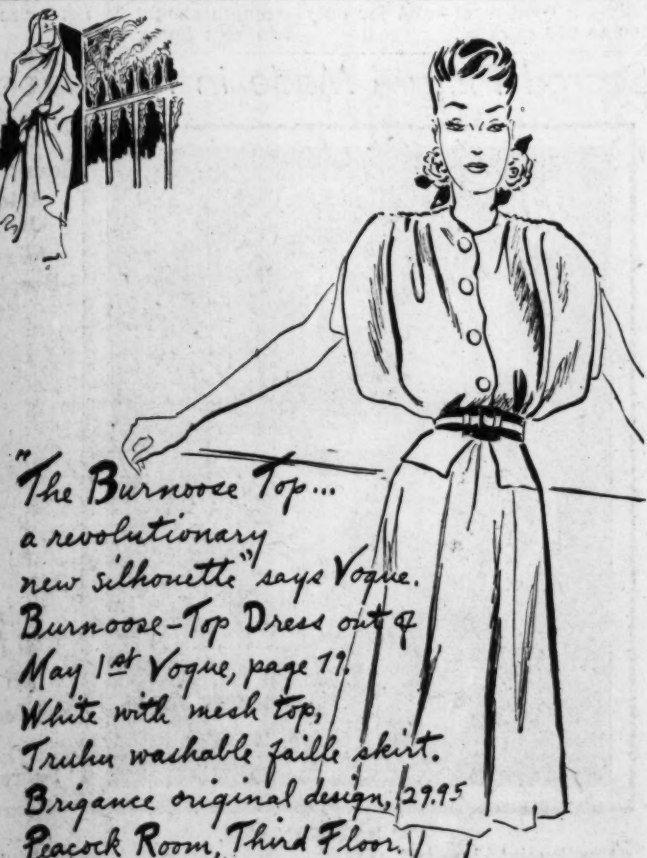 "The Burnoose Top...
a revolutionary
new silhouette" says Vogue.
Burnoose-Top Dress out of
May 1st Vogue, page 79.
White with mesh top,
Truhu washable faille skirt.
Brigance original design, 29.95
Peacock Room, Third Floor.